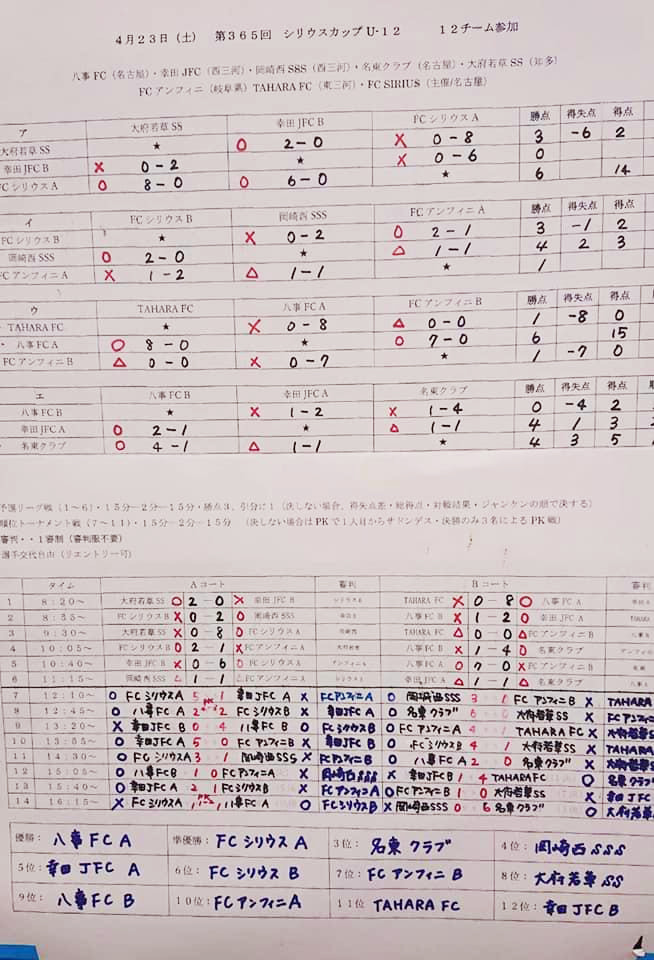 4月23日（土） 第365回 シリウスカップ U-12 12チーム参加
八事FC（名古屋）・幸田JFC（西三河）・岡崎西SSS（西三河）・名東クラブ（名古屋）・大府若草SS（知多）
FCアンフィニ（岐阜県）TAHARA FC（東三河）・FC SIRIUS（主催/名古屋）
ア 大府若草SS 幸田JFC B FCシリウスA 勝点 得失点 得点
大府若草SS ★ O 2-0 X 0-8 3 -6 2
幸田JFC B X 0-2 ★ X 0-6 0
FCシリウスA O 8-0 O 6-0 ★ 6 14
イ FCシリウスB 岡崎西SSS FCアンフィニA 勝点 得失点 得点
FCシリウスB ★ X 0-2 O 2-1 3 -1 2
岡崎西SSS O 2-0 ★ △ 1-1 4 2 3
FCアンフィニA X 1-2 △ 1-1 ★ 1
ウ TAHARA FC 八事FC A FCアンフィニB 勝点 得失点 得点
TAHARA FC ★ X 0-8 △ 0-0 1 -8 0
八事FC A O 8-0 ★ O 7-0 6 15
FCアンフィニB △ 0-0 X 0-7 ★ 1 -7 0
エ 八事FC B 幸田JFC A 名東クラブ 勝点 得失点 得点
八事FC B ★ X 1-2 X 1-4 0 -4 2
幸田JFC A O 2-1 ★ △ 1-1 4 1 3
名東クラブ O 4-1 △ 1-1 ★ 4 3 5
予選リーグ戦（1～6）・15分－2分－15分・勝点3、引分に1（決しない場合、得失点差・総得点・対戦結果・ジャンケンの順で決する）
順位トーナメント戦（7～11）・15分－2分－15分 （決しない場合はPKで1人目からサドンデス・決勝のみ3名によるPK戦）
審判・・1審制（審判服不要）
選手交代自由（リエントリー可）
タイム Aコート 審判 Bコート 審判
1 8:20～ 大府若草SS O 2-0 X 幸田JFC B TAHARA FC X 0-8 O 八事FC A
2 8:55～ FCシリウスB X 0-2 O 岡崎西SSS 八事FC B X 1-2 O 幸田JFC A
3 9:30～ 大府若草SS X 0-8 O FCシリウスA TAHARA FC △ 0-0 △ FCアンフィニB
4 10:05～ FCシリウスB O 2-1 X FCアンフィニA 八事FC B X 1-4 O 名東クラブ
5 10:40～ 幸田JFC B X 0-6 O FCシリウスA 八事FC A O 7-0 X FCアンフィニB
6 11:15～ 岡崎西SSS △ 1-1 △ FCアンフィニA 幸田JFC A △ 1-1 △ 名東クラブ
7 12:10～ O FCシリウスA 5 1 幸田JFC A X FCアンフィニA O 岡崎西SSS 3 1 FCアンフィニB X TAHARA
8 12:45～ O 八事FC A 2 2 FCシリウスB X 幸田JFC A O 名東クラブ 6 0 大府若草SS X FCアンフィニ
9 13:20～ X 幸田JFC B 0 4 八事FC B O FCシリウスA X FCアンフィニA 4 1 TAHARA FC X 大府若草SS
10 13:55～ O 幸田JFC A 5 0 FCアンフィニB X 八事FC B O FCシリウスB 4 1 大府若草SS X TAHARA
11 14:30～ O FCシリウスA 3 1 岡崎西SSS X FCアンフィニB O 八事FC A 2 0 名東クラブ X 大府若草SS
12 15:05～ O 八事FC B 1 0 FCアンフィニA X 岡崎西SSS X 幸田JFC B 1 4 TAHARA FC O 名東クラブ
13 15:40～ O 幸田JFC A 2 1 FCシリウスB X FCアンフィニA O FCアンフィニB 1 0 大府若草SS X 幸田JFC
14 16:15～ X FCシリウスA PK 八事FC A O FCシリウスB X 岡崎西SSS 0 6 名東クラブ O 大府若草
優勝： 八事FC A 準優勝： FCシリウスA 3位： 名東クラブ 4位： 岡崎西SSS
5位： 幸田JFC A 6位： FCシリウスB 7位： FCアンフィニB 8位： 大府若草SS
9位： 八事FC B 10位： FCアンフィニA 11位 TAHARA FC 12位： 幸田JFC B